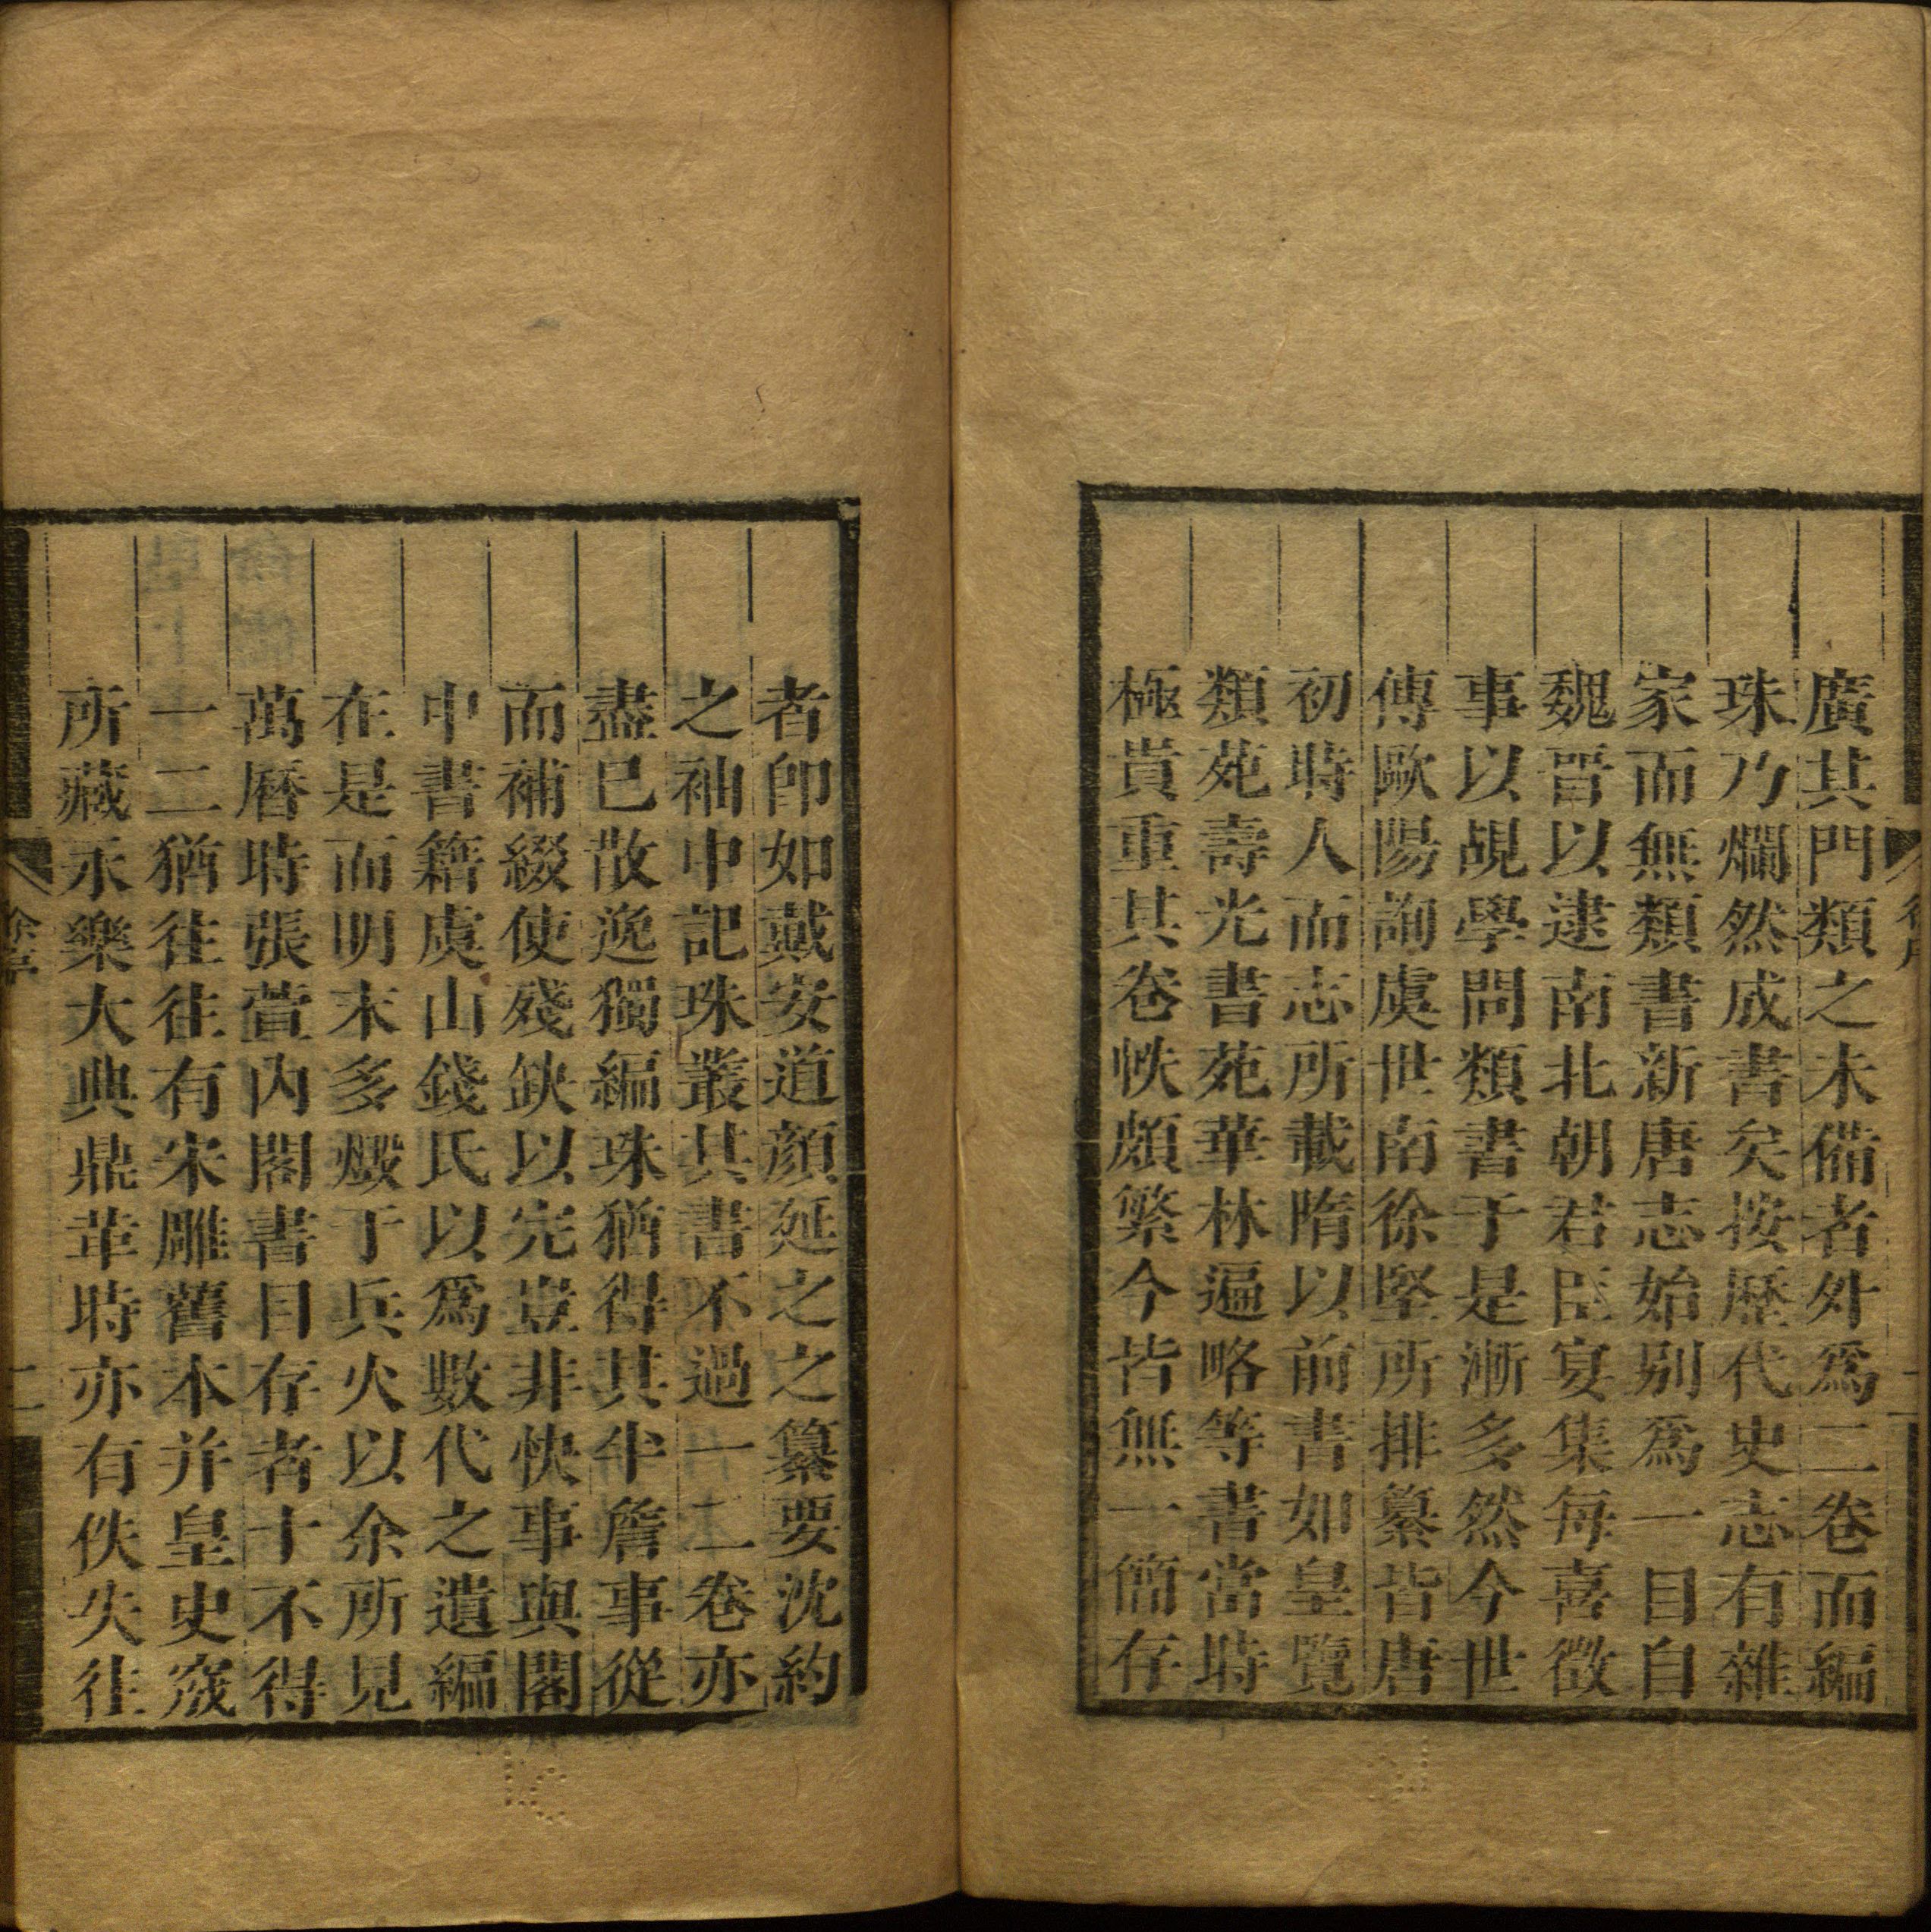 廣其門類之未備者外爲二卷而編
珠乃爛然成書矣按歴代史志有雜
家而無類書新唐志始别爲一目自
魏晋以逮南北朝君臣宴集每喜徴
事以覘學問類書于是漸多然今世
傳歐陽詢虞世南徐堅所排纂皆唐
初時人而志所載隋以前書如皇覽
類苑壽光書苑華林遍略等書當時
極貴重其卷帙頗繁今皆無一簡存
者卽如戴安道顔延之之纂要沈約
之袖中記珠叢其書不過一二卷亦
盡已散逸獨編珠猶得其半詹事從
而補綴使殘缺以完豈非快事與閣
中書籍虞山錢氏以爲數代之遺編
在是而明末多燬于兵火以余所見
萬曆時張萱内閣書目存者十不得
一二猶往往有宋雕舊本并皇史宬
所藏永樂大典鼎革時亦有佚失往
徐序
二